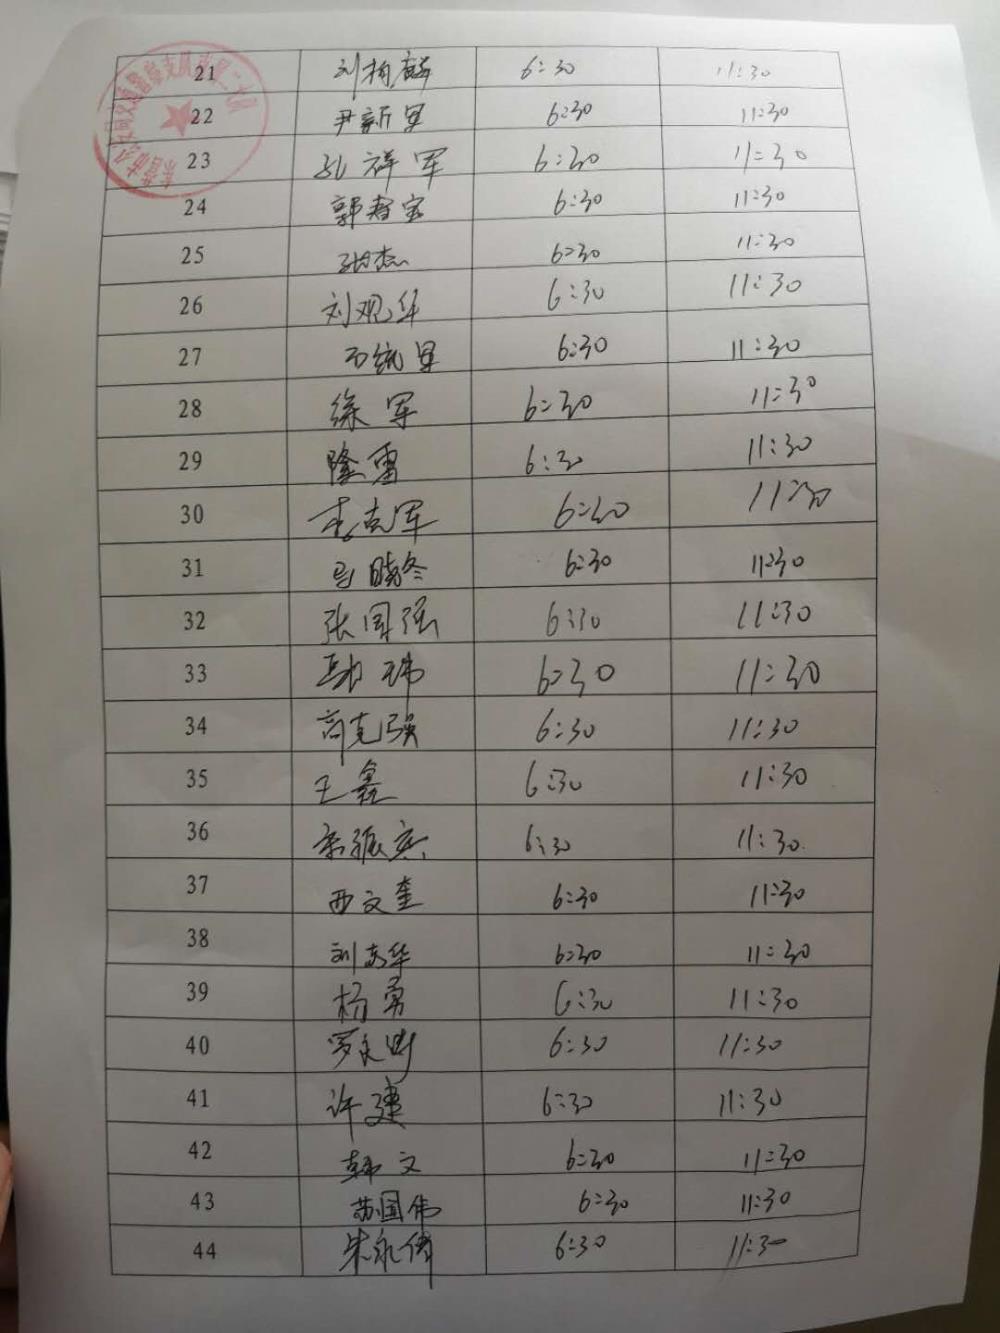 21 刘柏麟 6:30 11:30
22 尹新军 6:30 11:30
23 孔祥军 6:30 11:30
24 郭春宝 6:30 11:30
25 张杰 6:30 11:30
26 刘观华 6:30 11:30
27 石统军 6:30 11:30
28 徐军 6:30 11:30
29 隆雷 6:30 11:30
30 李克军 6:30 11:30
31 马晓冬 6:30 11:30
32 张国强 6:30 11:30
33 玮 6:30 11:30
34 高克强 6:30 11:30
35 王鑫 6:30 11:30
36 振 6:30 11:30
37 西文奎 6:30 11:30
38 刘志华 6:30 11:30
39 杨勇 6:30 11:30
40 罗 6:30 11:30
41 许建 6:30 11:30
42 韩文 6:30 11:30
43 苏国伟 6:30 11:30
44 朱永 6:30 11:30